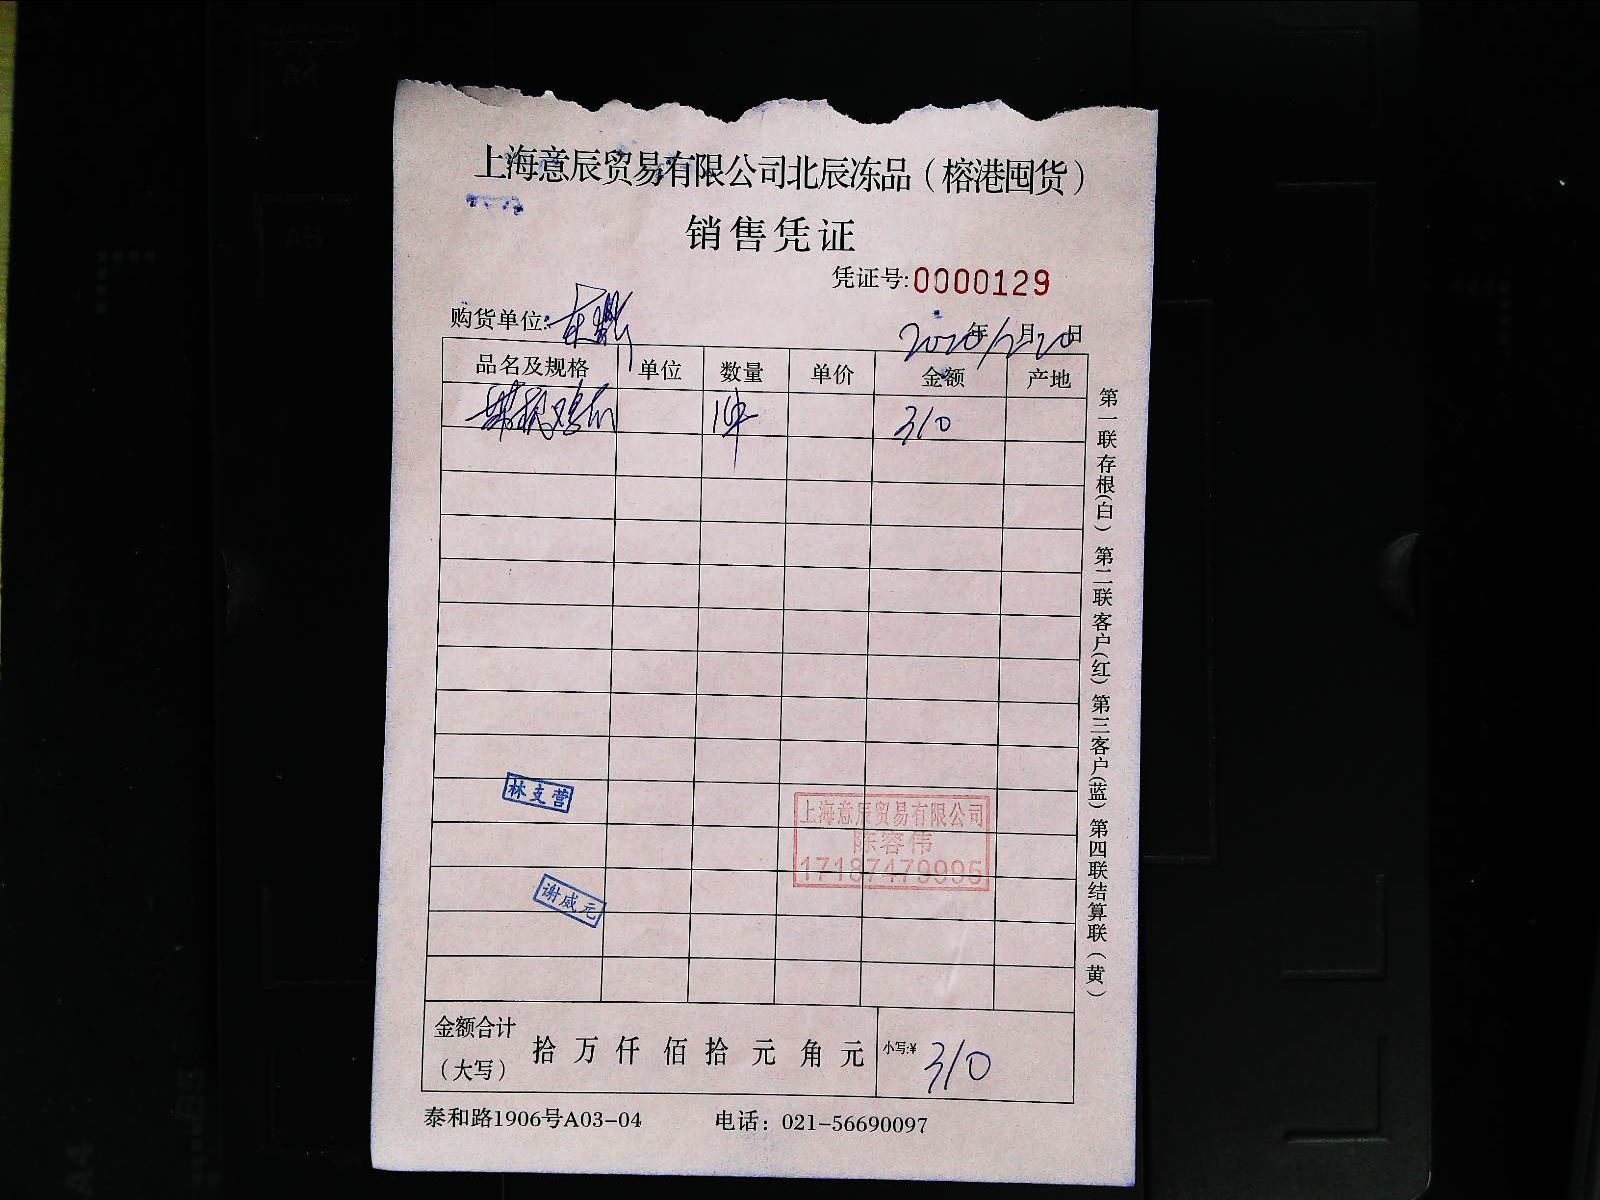 上海意辰贸易有限公司北辰冻品（榕港囤货）
销售凭证
凭证号:0000129
购货单位:
2020年12月20日
品名及规格 单位 数量 单价 金额 产地
1件 310
林支营
上海意辰贸易有限公司
陈容伟
17187479995
谢威元
金额合计（大写） 拾 万 仟 佰 拾 元 角 元 小写:¥ 310
泰和路1906号A03-04 电话：021-56690097
第一联存根(白) 第二联客户(红) 第三客户(蓝) 第四联结算联(黄)